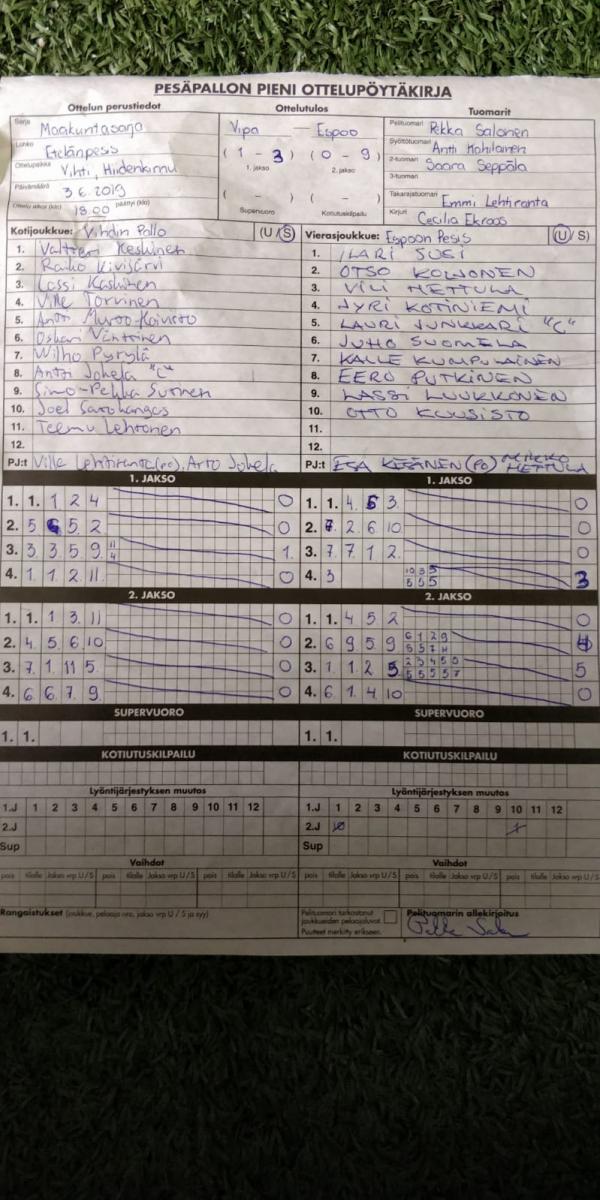 PESÄPALLON PIENI OTTELUPÖYTÄKIRJA
Ottelun perustiedot
Sarja Maakuntasarja
Lohko Etelänpesis
Ottelupaikka Vihti, Hiidenkinnu
Päivämäärä 3.6.2019
Ottelu alkoi (klo) 18.00 päättyi (klo)
Ottelutulos
Vipa — Espoo
(1 - 3) (0 - 9)
1. jakso 2. jakso
( - ) ( - )
Supervuoro Kotiutuskilpailu
Tuomarit
Pelituomari Pekka Salonen
Syöttötuomari Antti Mahilainen
2-tuomari Saara Seppälä
3-tuomari
Takarajatuomari Emmi Lehtiranta
Kirjuri Cecilia Ekroos
Kotijoukkue: Vihdin Pallo (U/S)
1. Valtteri Keskinen
2. Raiko Kivijärvi
3. Lassi Kaskinen
4. Ville Torvinen
5. Antti Murto-Koivisto
6. Oskari Vänttinen
7. Wilho Pyrylä
8. Antti Johela "C"
9. Simo-Pekka Suonen
10. Joel Saarikangas
11. Teemu Lehtonen
12.
PJ:t Ville Lehtiranta (po), Arto Johela
Vierasjoukkue: Espoon Pesis (U/S)
1. ILARI SUSI
2. OTSO KOLJONEN
3. VILI METTULA
4. JYRI KOTINIEMI
5. LAURI JUNKKARI "C"
6. JUHO SUOMELA
7. KALLE KUMPULAINEN
8. EERO PUTKINEN
9. LASSI LUUKKONEN
10. OTTO KUUSISTO
11.
12.
PJ:t ESA KESÄNEN (PO) MIKKO METTULA
1. JAKSO
1. 1. 1 2 4 0
2. 5 6 5 2 0
3. 3 3 5 9 11 4 1
4. 1 1 2 11 0
1. JAKSO
1. 1. 4 6 3 0
2. 7 2 6 10 0
3. 7 7 1 2 0
4. 3 10 3 5 3
5 5 5
2. JAKSO
1. 1. 1 3 11 0
2. 4 5 6 10 0
3. 7 1 11 5 0
4. 6 6 7 9 0
2. JAKSO
1. 1. 4 5 2 0
2. 6 9 5 9 6 1 2 9 4
5 5 7 H
3. 1 1 2 5 2 3 4 5 5 5
5 5 5 5 7
4. 6 1 4 10 0
SUPERVUORO
1. 1.
SUPERVUORO
1. 1.
KOTIUTUSKILPAILU
KOTIUTUSKILPAILU
Lyöntijärjestyksen muutos
1.J 1 2 3 4 5 6 7 8 9 10 11 12
2.J
Sup
Lyöntijärjestyksen muutos
1.J 1 2 3 4 5 6 7 8 9 10 11 12
2.J 10 1
Sup
Vaihdot
pois tilalle Jakso vrp U/S pois tilalle Jakso vrp U/S pois tilalle Jakso vrp U/S
Vaihdot
pois tilalle Jakso vrp U/S pois tilalle Jakso vrp U/S pois tilalle Jakso vrp U/S
Rangaistukset (joukkue, pelaaja nro, jakso vrp U / S ja syy)
Pelituomari tarkastanut
joukkueiden pelaajaluvat
Puutteet merkitty erikseen.
Pelituomarin allekirjoitus